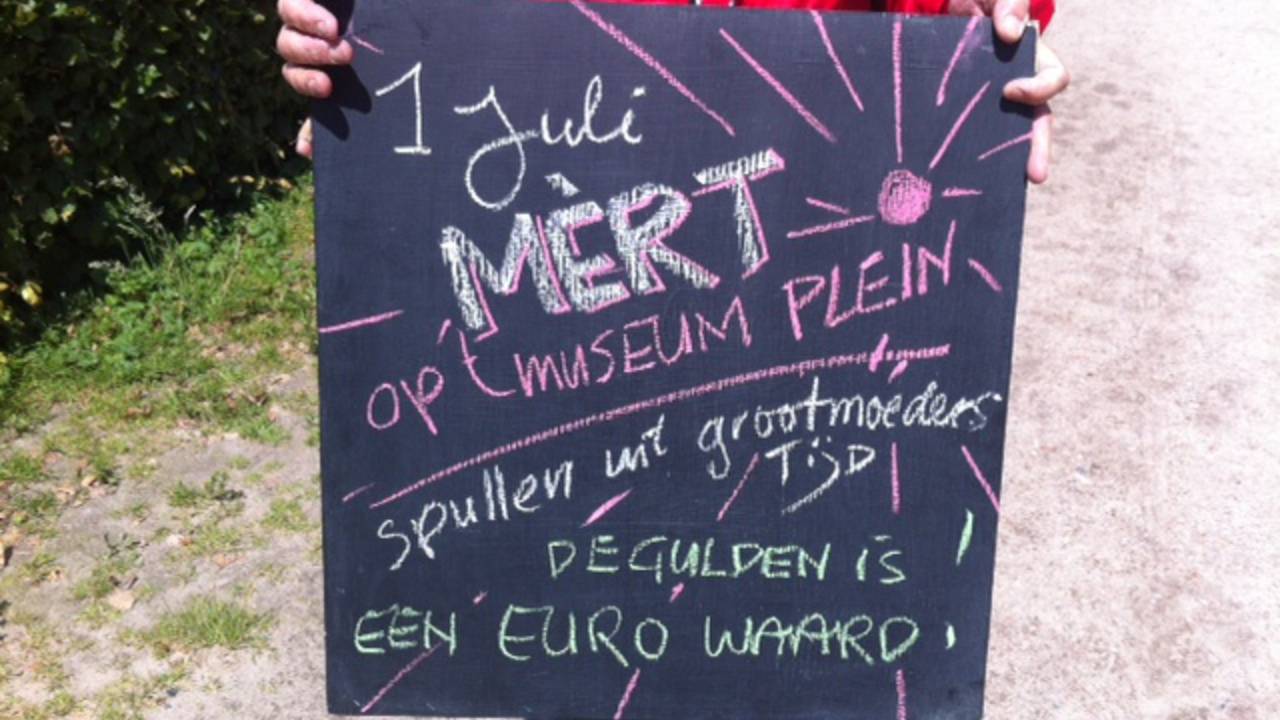 1 Juli
MÈRT
op 't MUSEUM PLEIN
spullen uit grootmoeders
TIJD
DE GULDEN IS
EEN EURO WAARD!